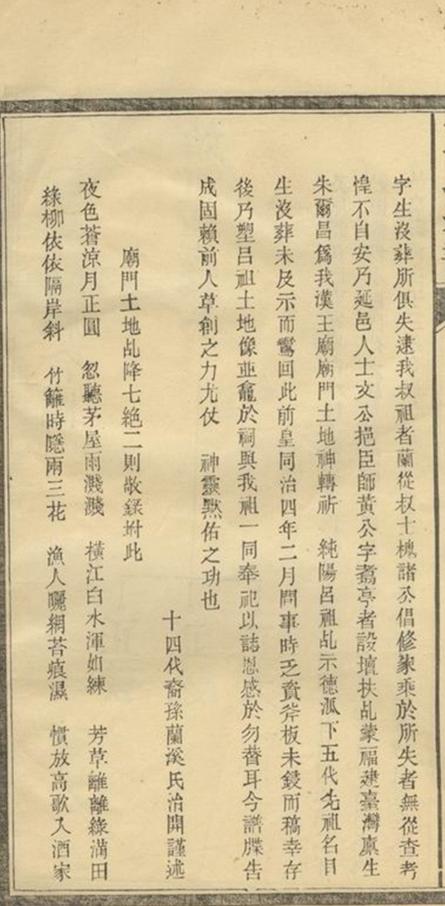 字生沒葬所俱失逮我叔祖者蘭從叔士槐諸公倡修家乘於所失者無從查考
惶不自安乃延邑人士文公挹臣師黃公字翥亭者設壇扶乩蒙福建臺灣稟生
朱爾昌為我漢王廟廟門土地神轉祈 純陽呂祖乩示德派下五代先祖名目
生沒葬未及示而鸞回此前皇同治四年二月間事時乏資斧板未鋟而稿幸存
後乃塑呂祖土地像並龕於祠與我祖一同奉祀以誌恩感於勿替耳今譜牒告
成固賴前人草創之力尤仗 神靈默佑之功也
十四代裔孫蘭溪氏治開謹述
廟門土地乩降七絕二則敬錄坿此
夜色蒼涼月正圓 忽聽茅屋雨濺濺 橫江白水渾如練 芳草離離綠滿田
綠柳依依隔岸斜 竹籬時隱兩三花 漁人曬網苔痕濕 慣放高歌入酒家